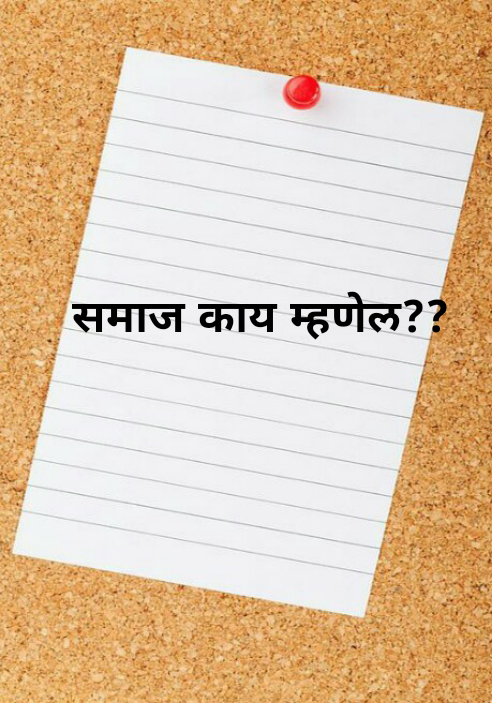 समाज काय म्हणेल??